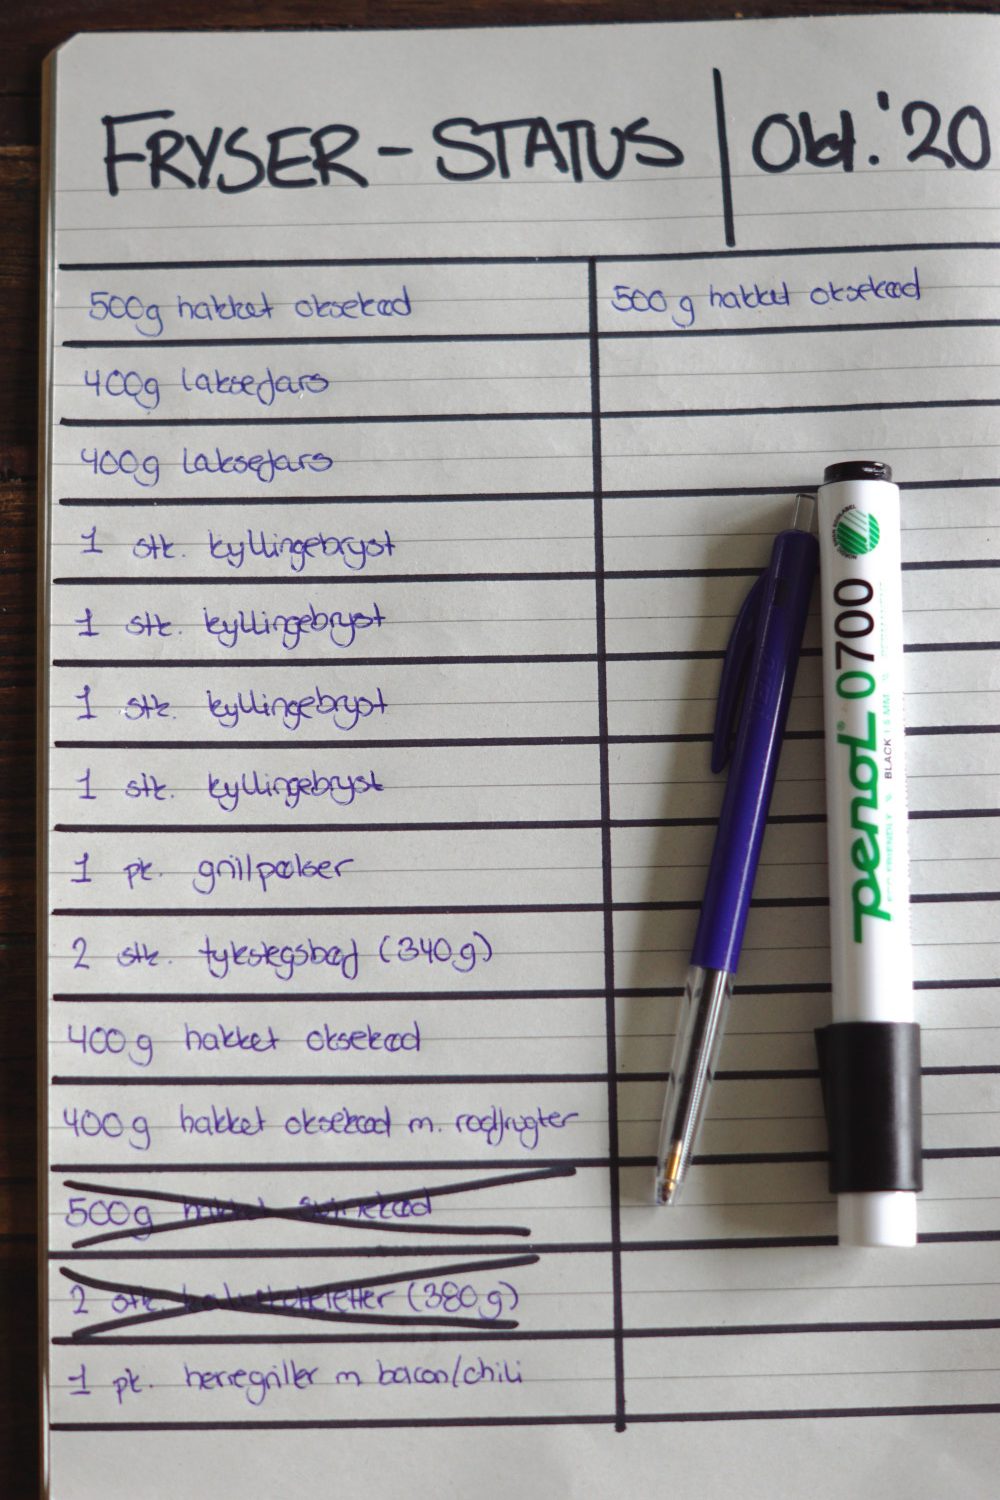 FRYSER-STATUS | Okt. '20
500g hakket oksekød
500g hakket oksekød
400g laksefars
400g laksefars
1 stk. kyllingebryst
1 stk. kyllingebryst
1 stk. kyllingebryst
1 stk. kyllingebryst
1 pk. grillpølser
2 stk. tykstegsbøf (340g)
400g hakket oksekød
400g hakket oksekød m. rodfrugter
500g hakket svinekød
2 stk. (380g)
1 pk. herregriller m bacon/chili
penol® 0700
BLACK 1.5 MM